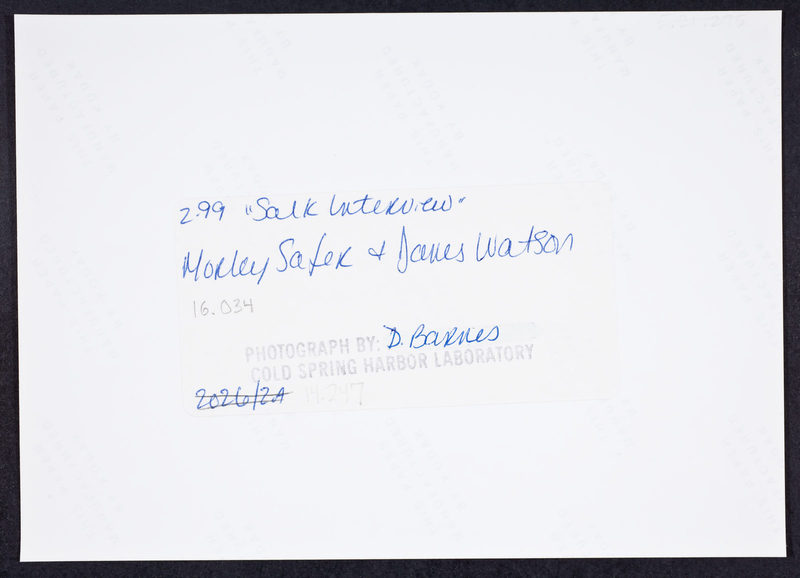 2.99 "Salk Interview"
Morley Safer + James Watson
16.034
PHOTOGRAPH BY: D. Barnes
COLD SPRING HARBOR LABORATORY
2026/2A 14.247